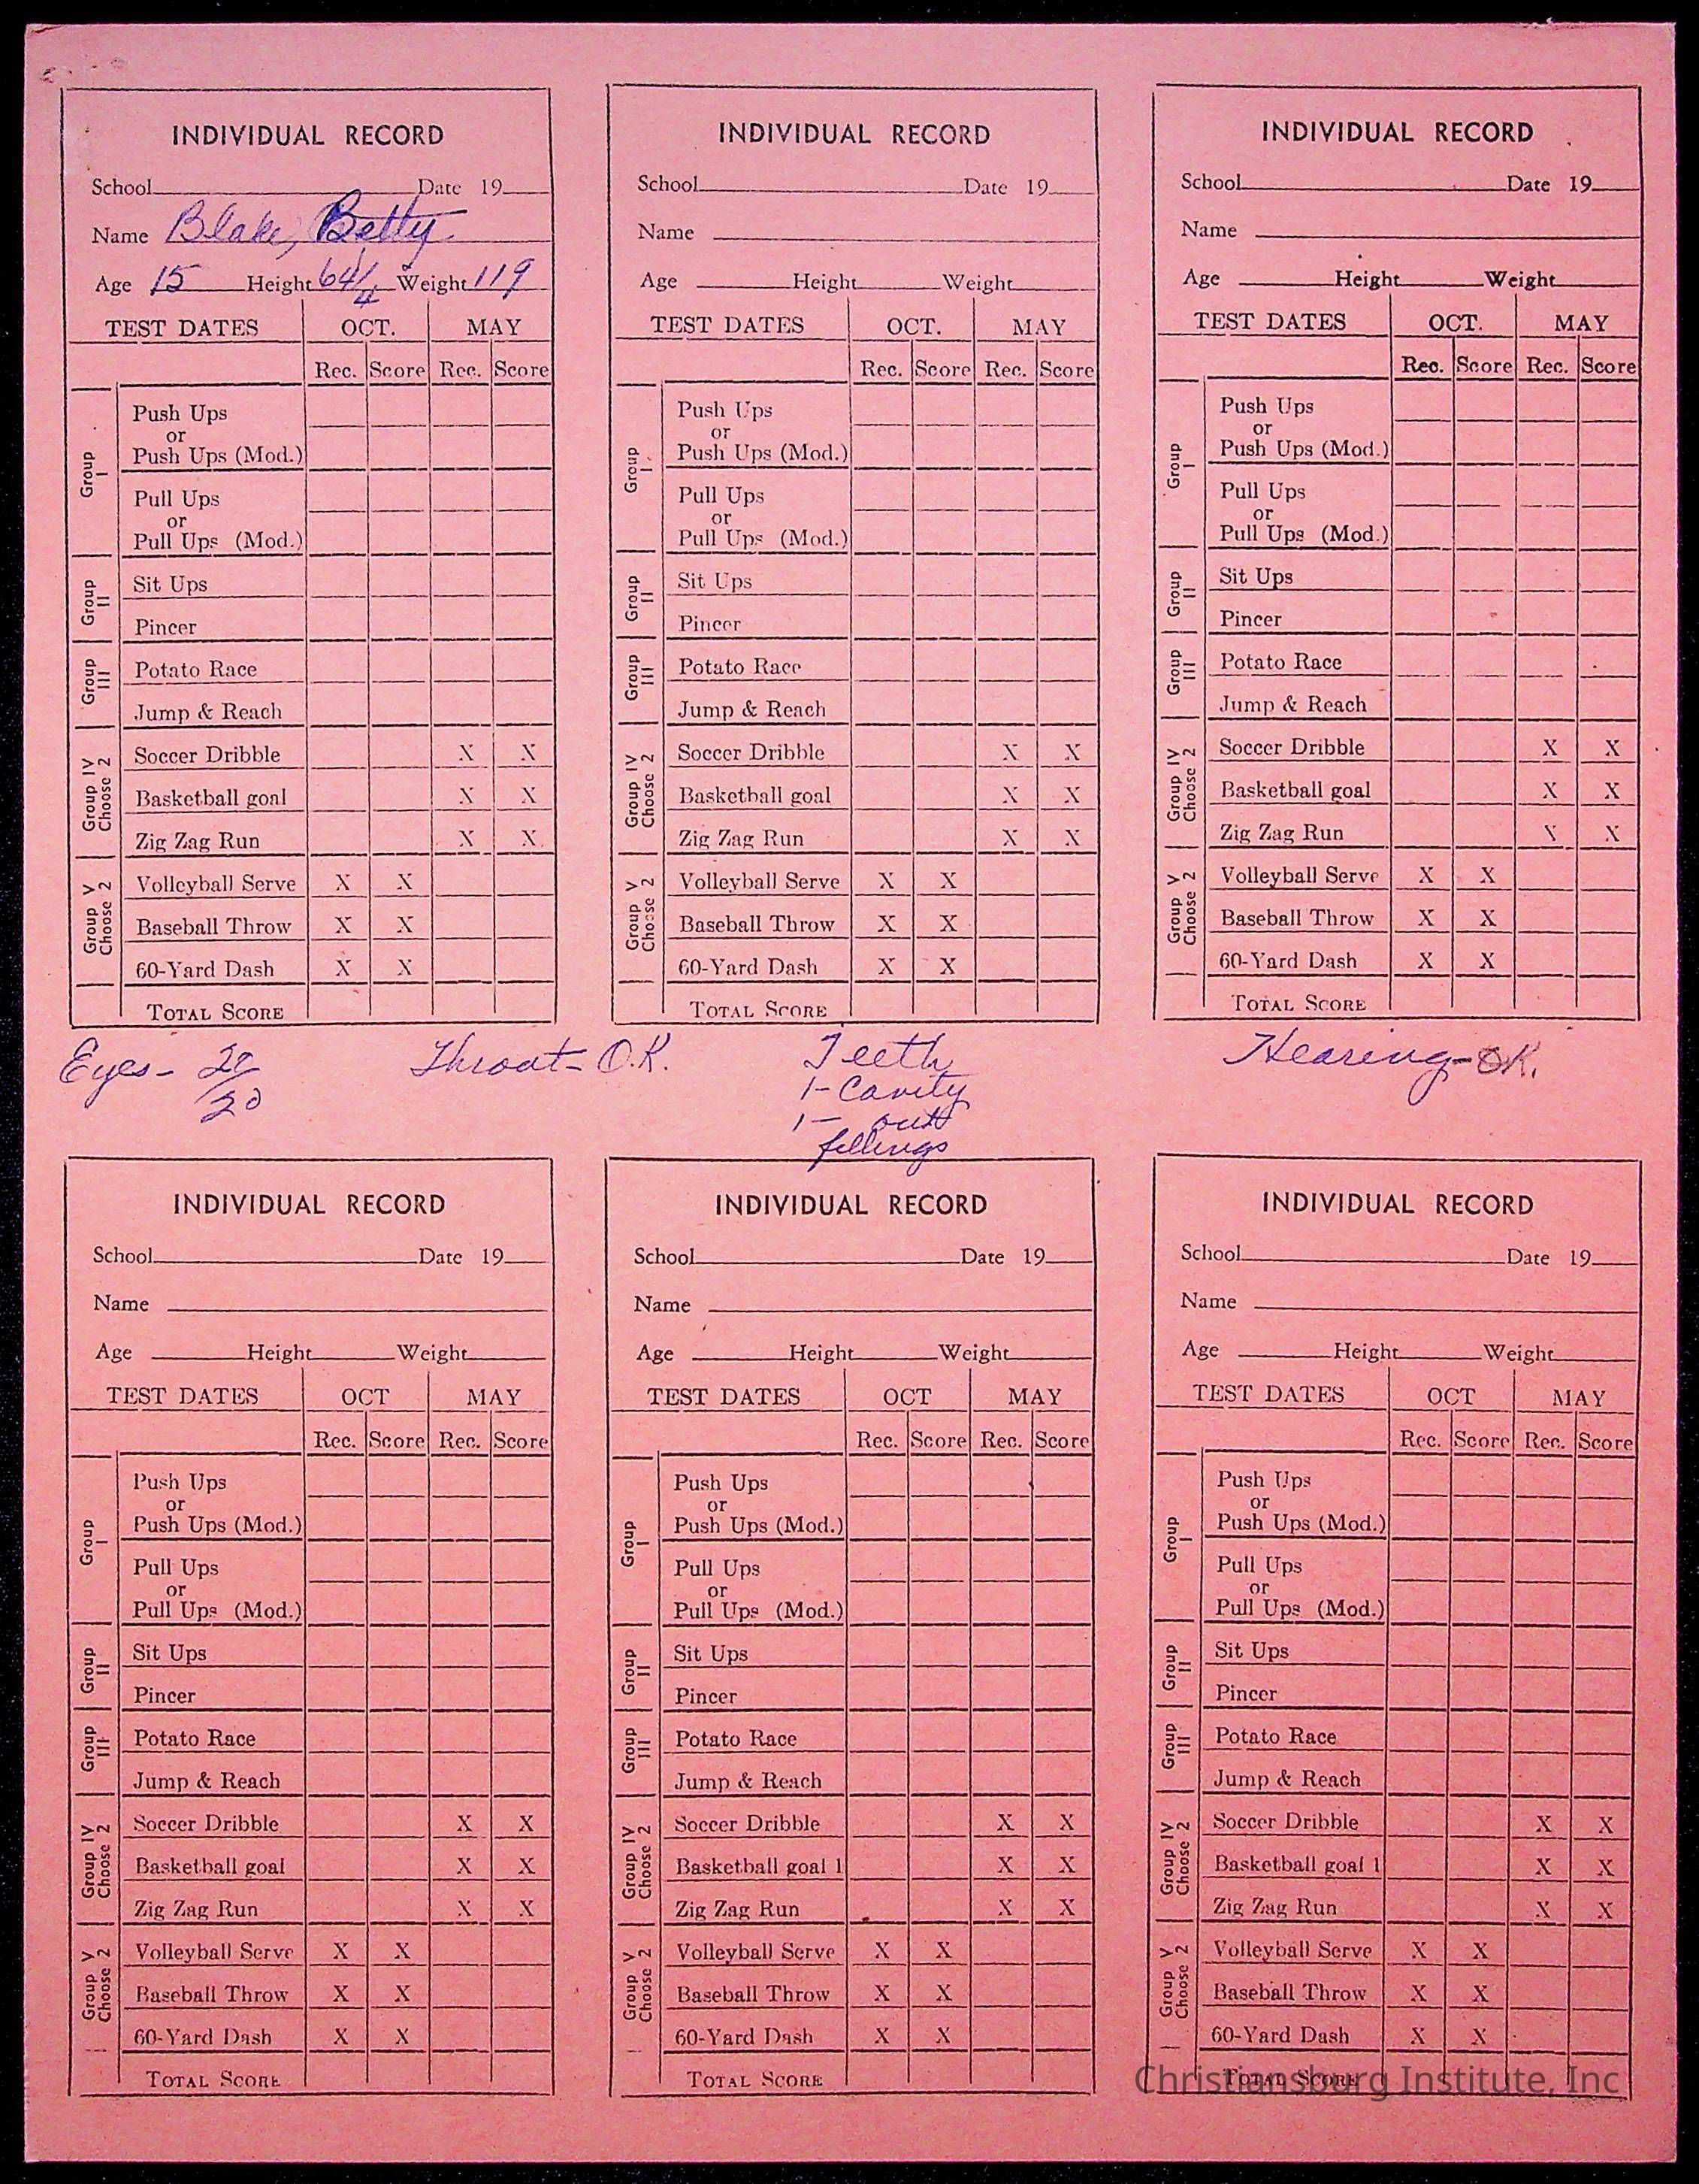 INDIVIDUAL RECORD
School Date 19
Name Blake, Betty
Age 15 Height 64 1/4 Weight 119
TEST DATES OCT. MAY
Rec. Score Rec. Score
Group I
Push Ups
or
Push Ups (Mod.)
Pull Ups
or
Pull Ups (Mod.)
Group II
Sit Ups
Pincer
Group III
Potato Race
Jump & Reach
Group IV Choose 2
Soccer Dribble X X
Basketball goal X X
Zig Zag Run X X
Group V Choose 2
Volleyball Serve X X
Baseball Throw X X
60-Yard Dash X X
TOTAL SCORE
INDIVIDUAL RECORD
School Date 19
Name
Age Height Weight
TEST DATES OCT. MAY
Rec. Score Rec. Score
Group I
Push Ups
or
Push Ups (Mod.)
Pull Ups
or
Pull Ups (Mod.)
Group II
Sit Ups
Pincer
Group III
Potato Race
Jump & Reach
Group IV Choose 2
Soccer Dribble X X
Basketball goal X X
Zig Zag Run X X
Group V Choose 2
Volleyball Serve X X
Baseball Throw X X
60-Yard Dash X X
TOTAL SCORE
INDIVIDUAL RECORD
School Date 19
Name
Age Height Weight
TEST DATES OCT. MAY
Rec. Score Rec. Score
Group I
Push Ups
or
Push Ups (Mod.)
Pull Ups
or
Pull Ups (Mod.)
Group II
Sit Ups
Pincer
Group III
Potato Race
Jump & Reach
Group IV Choose 2
Soccer Dribble X X
Basketball goal X X
Zig Zag Run X X
Group V Choose 2
Volleyball Serve X X
Baseball Throw X X
60-Yard Dash X X
TOTAL SCORE
Eyes - 20/20
Throat - O.K.
Teeth
1 - Cavity
1 - out
fillings
Hearing - OK.
INDIVIDUAL RECORD
School Date 19
Name
Age Height Weight
TEST DATES OCT MAY
Rec. Score Rec. Score
Group I
Push Ups
or
Push Ups (Mod.)
Pull Ups
or
Pull Ups (Mod.)
Group II
Sit Ups
Pincer
Group III
Potato Race
Jump & Reach
Group IV Choose 2
Soccer Dribble X X
Basketball goal X X
Zig Zag Run X X
Group V Choose 2
Volleyball Serve X X
Baseball Throw X X
60-Yard Dash X X
TOTAL SCORE
INDIVIDUAL RECORD
School Date 19
Name
Age Height Weight
TEST DATES OCT MAY
Rec. Score Rec. Score
Group I
Push Ups
or
Push Ups (Mod.)
Pull Ups
or
Pull Ups (Mod.)
Group II
Sit Ups
Pincer
Group III
Potato Race
Jump & Reach
Group IV Choose 2
Soccer Dribble X X
Basketball goal 1 X X
Zig Zag Run X X
Group V Choose 2
Volleyball Serve X X
Baseball Throw X X
60-Yard Dash X X
TOTAL SCORE
INDIVIDUAL RECORD
School Date 19
Name
Age Height Weight
TEST DATES OCT MAY
Rec. Score Rec. Score
Group I
Push Ups
or
Push Ups (Mod.)
Pull Ups
or
Pull Ups (Mod.)
Group II
Sit Ups
Pincer
Group III
Potato Race
Jump & Reach
Group IV Choose 2
Soccer Dribble X X
Basketball goal 1 X X
Zig Zag Run X X
Group V Choose 2
Volleyball Serve X X
Baseball Throw X X
60-Yard Dash X X
TOTAL SCORE
Christiansburg Institute, Inc